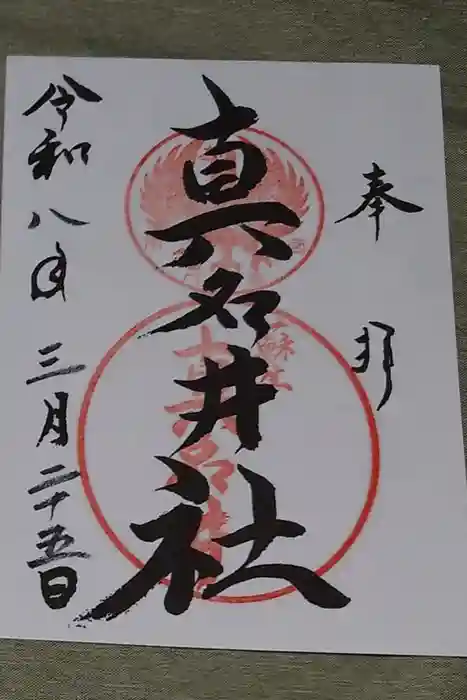 奉拝
真名井社
令和八年三月二十五日